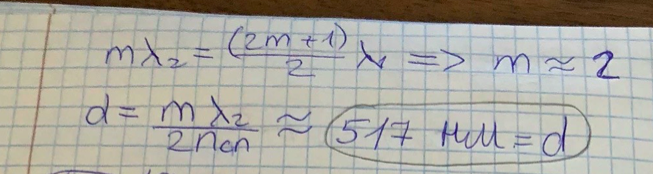 mλ₂ = (2m+1)/2 λ₁ => m ≈ 2
d = mλ₂/2nсл ≈ 517 нм = d